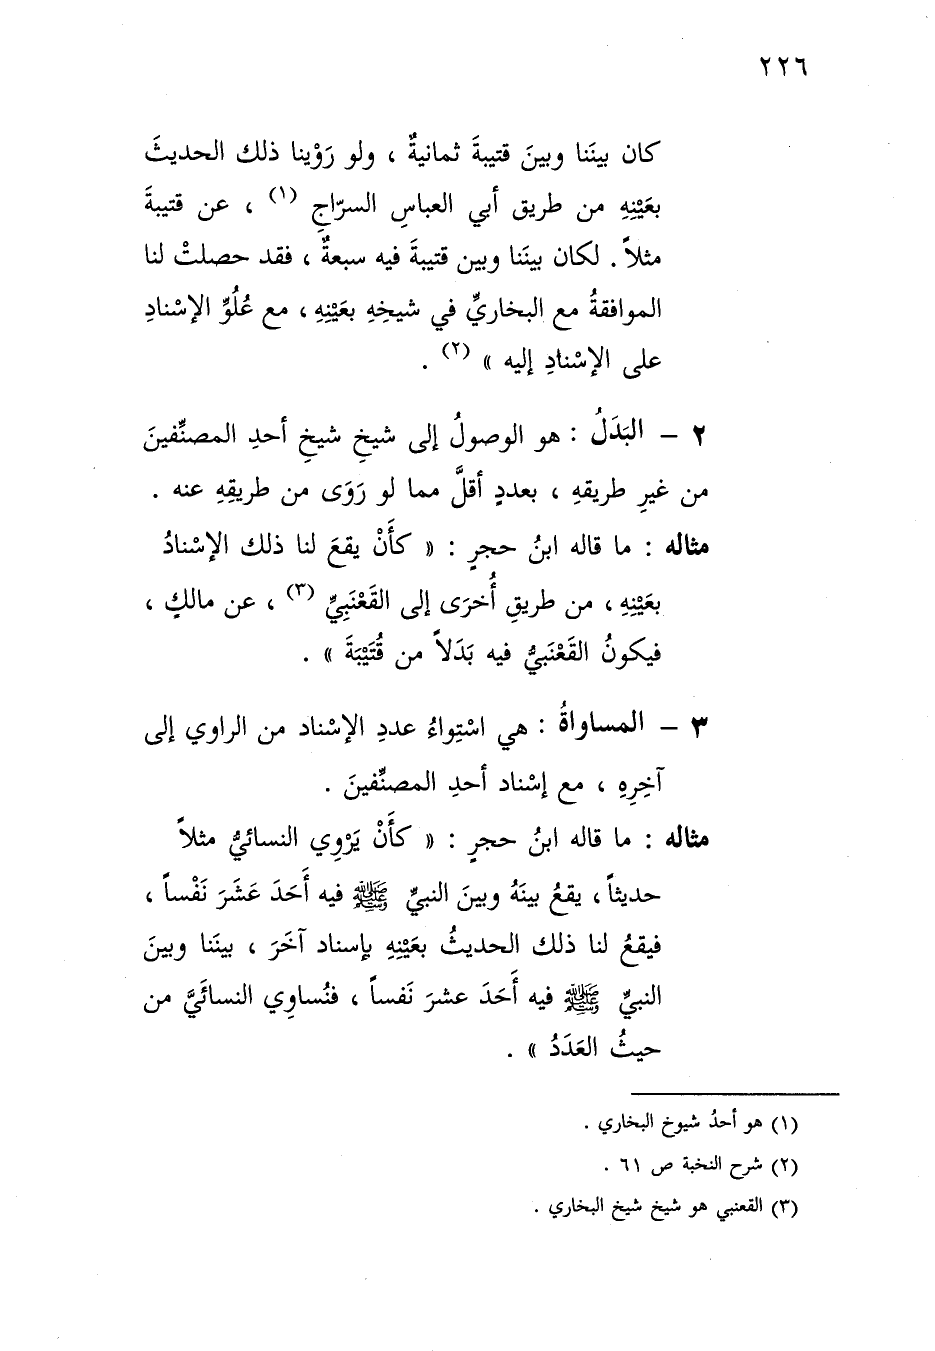 ٢٢٦
كان بينَنا وبينَ قتيبةَ ثمانيةٌ ، ولو رَوْينا ذلك الحديثَ
بعَيْنِهِ من طريق أبي العباسِ السرّاجِ (١) ، عن قتيبةَ
مثلاً . لكان بينَنا وبين قتيبةَ فيه سبعةٌ ، فقد حصلتْ لنا
الموافقةُ مع البخاريِّ في شيخِهِ بعَيْنِهِ ، مع عُلُوِّ الإسْنادِ
على الإسْنادِ إليه » (٢) .
٢ – البَدَلُ : هو الوصولُ إلى شيخِ شيخِ أحدِ المصنِّفينَ
من غيرِ طريقهِ ، بعددٍ أقلَّ مما لو رَوَى من طريقِهِ عنه .
مثاله : ما قاله ابنُ حجرٍ : « كأَنْ يقعَ لنا ذلك الإسْنادُ
بعَيْنِهِ ، من طريقِ أُخرَى إلى القَعْنَبِيِّ (٣) ، عن مالكٍ ،
فيكونُ القَعْنَبيُّ فيه بَدَلاً من قُتَيْبَةَ » .
٣ – المساواةُ : هي اسْتِواءُ عددِ الإسْناد من الراوي إلى
آخِرِهِ ، مع إسْناد أحدِ المصنِّفينَ .
مثاله : ما قاله ابنُ حجرٍ : « كأَنْ يَرْوِي النسائيُّ مثلاً
حديثاً ، يقعُ بينَهُ وبينَ النبيِّ ﷺ فيه أَحَدَ عَشَرَ نَفْساً ،
فيقعُ لنا ذلك الحديثُ بعَيْنِهِ بإسناد آخَرَ ، بينَنا وبينَ
النبيِّ ﷺ فيه أَحَدَ عشرَ نَفساً ، فنُساوِي النسائَيَّ من
حيثُ العَدَدُ » .
(١) هو أحدُ شيوخ البخاري .
(٢) شرح النخبة ص ٦١ .
(٣) القعنبي هو شيخ شيخ البخاري .